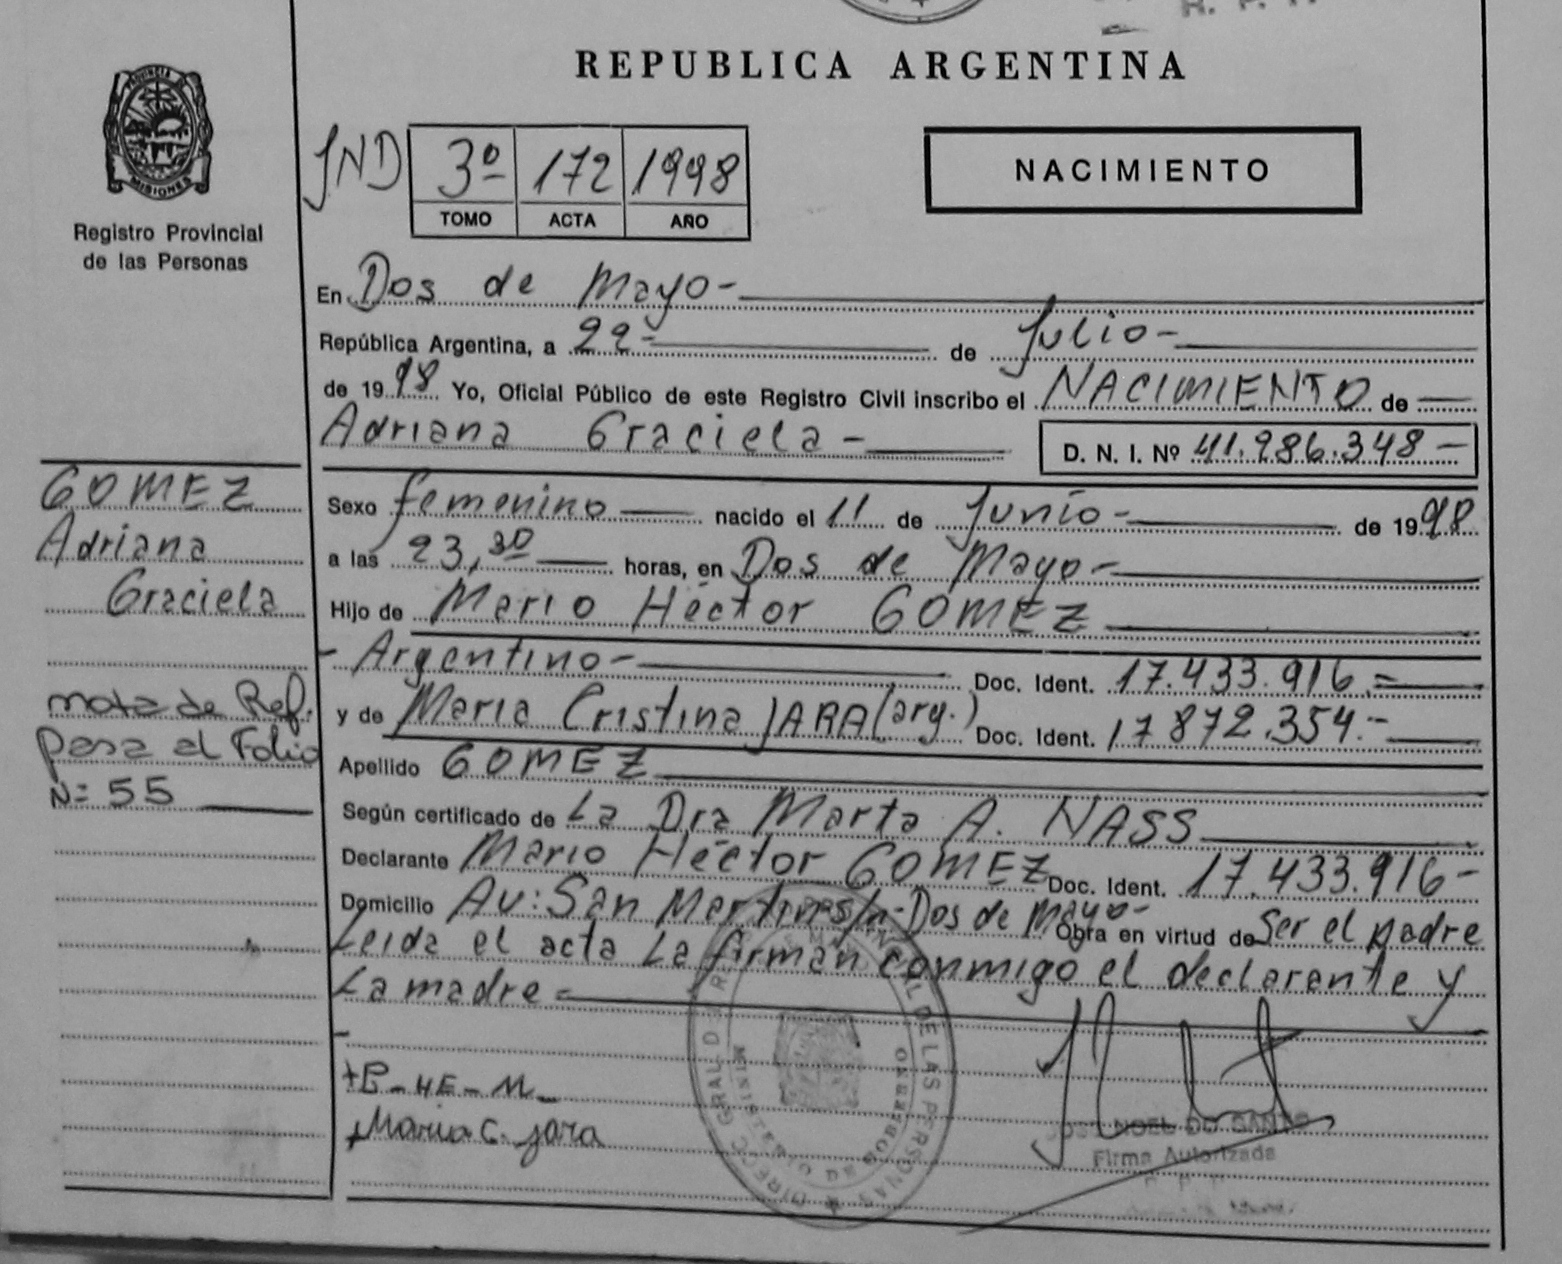 REPUBLICA ARGENTINA
PROVINCIA DE
MISIONES
Registro Provincial
de las Personas
IND
3º 172 1998
TOMO ACTA AÑO
NACIMIENTO
En Dos de Mayo-
República Argentina, a 22- de Julio-
de 1998 Yo, Oficial Público de este Registro Civil inscribo el NACIMIENTO de
Adriana Graciela- D. N. I. Nº 41.986.348-
GOMEZ
Adriana
Graciela
Sexo femenino nacido el 11 de Junio- de 1998
a las 23,30 horas, en Dos de Mayo-
Hijo de Mario Héctor GOMEZ
- Argentino- Doc. Ident. 17.433.916.=
y de Maria Cristina JARA (arg.) Doc. Ident. 17872.354.-
Apellido GOMEZ
nota de Ref.
pasa al Folio
N= 55
Según certificado de La Dra Marta A. NASS
Declarante Mario Héctor GOMEZ Doc. Ident. 17.433.916-
Domicilio Av: San Martin s/n-Dos de Mayo- Obra en virtud de Ser el padre
Leida el acta La firman conmigo el declarante y
La madre=
Maria C. Jara
DIRECC. GRAL. DE LAS PERSONAS
MINISTERIO DE GOBIERNO
NOEL DO SANTOS
Firma Autorizada